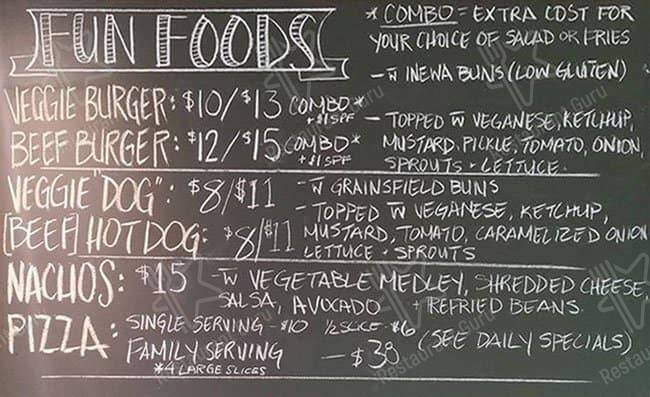 FUN FOODS
* COMBO = EXTRA COST FOR
YOUR CHOICE OF SALAD OR FRIES
- w̅ INEWA BUNS (LOW GLUTEN)
VEGGIE BURGER: $10/$13 COMBO*
+$1SPF
BEEF BURGER: $12/$15 COMBO*
+$1SPF
- TOPPED w̅ VEGANESE, KETCHUP,
MUSTARD, PICKLE, TOMATO, ONION,
SPROUTS + LETTUCE
VEGGIE "DOG": $8/$11
[BEEF] HOT DOG: $8/$11
- w̅ GRAINSFIELD BUNS
- TOPPED w̅ VEGANESE, KETCHUP,
MUSTARD, TOMATO, CARAMELIZED ONION
LETTUCE + SPROUTS
NACHOS: $15 - w̅ VEGETABLE MEDLEY, SHREDDED CHEESE,
SALSA, AVOCADO + REFRIED BEANS.
PIZZA: SINGLE SERVING - $10 1/2 SLICE - $6
FAMILY SERVING - $38
*4 LARGE SLICES
(SEE DAILY SPECIALS)
Restaurant Guru